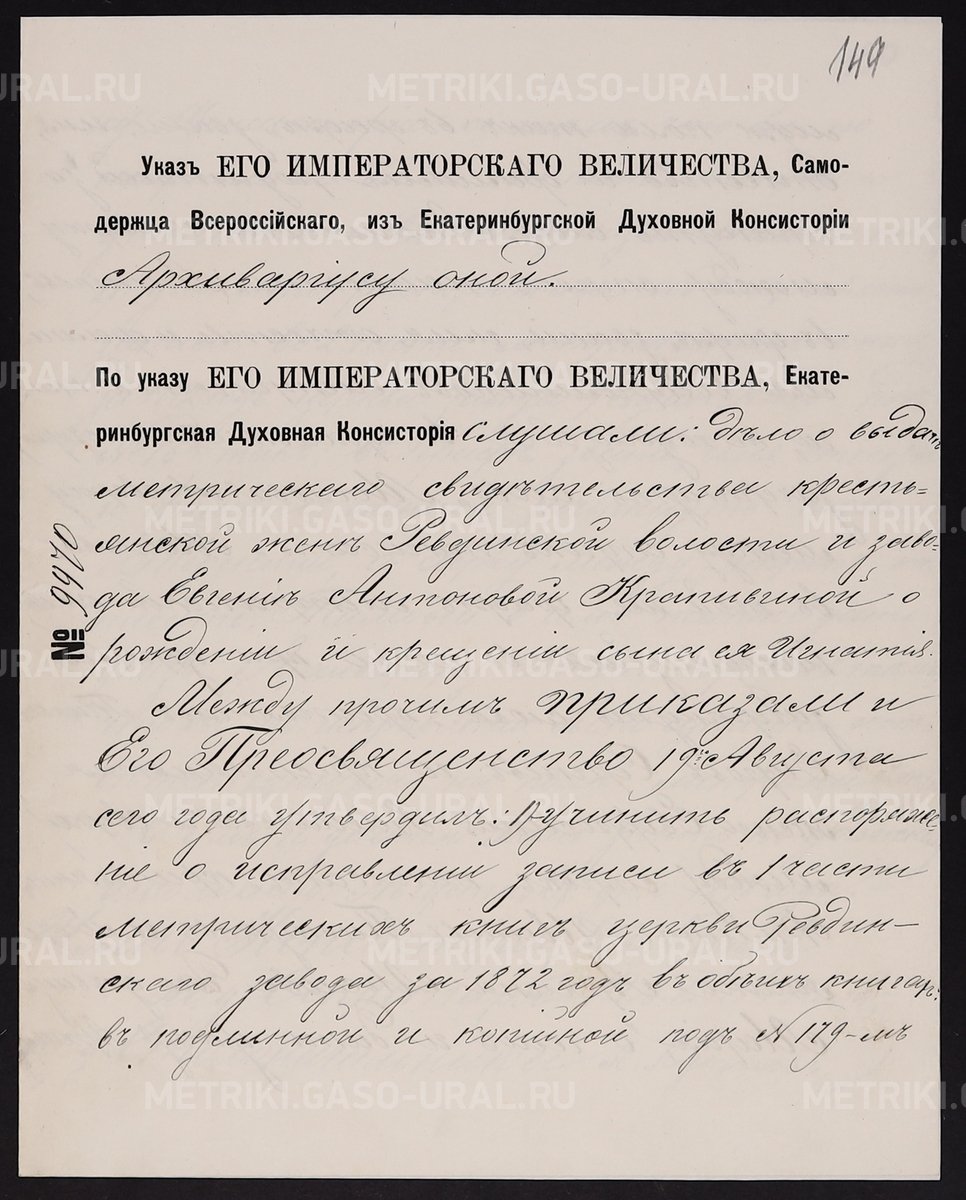 149
Указъ ЕГО ИМПЕРАТОРСКАГО ВЕЛИЧЕСТВА, Само-
держца Всероссійскаго, изъ Екатеринбургской Духовной Консисторіи
Архиваріусу оной.
По указу ЕГО ИМПЕРАТОРСКАГО ВЕЛИЧЕСТВА, Екате-
ринбургская Духовная Консисторія слушали: дѣло о выдачѣ
метрическаго свидѣтельства кресть-
янской женѣ Ревдинской волости и заво-
да Евгеніѣ Антоновой Крапивиной о
рожденіи и крещеніи сына ея Игнатія.
Между прочимъ приказали и
Его Преосвященство 19го Августа
сего года утвердилъ: 1) учинить распоряже-
ніе о исправленіи записи въ 1 части
метрическихъ книгъ церкви Ревдин-
скаго завода за 1872 годъ въ обѣихъ книгахъ:
въ подлинной и копійной подъ № 179-мъ
№ 9970
METRIKI.GASO-URAL.RU